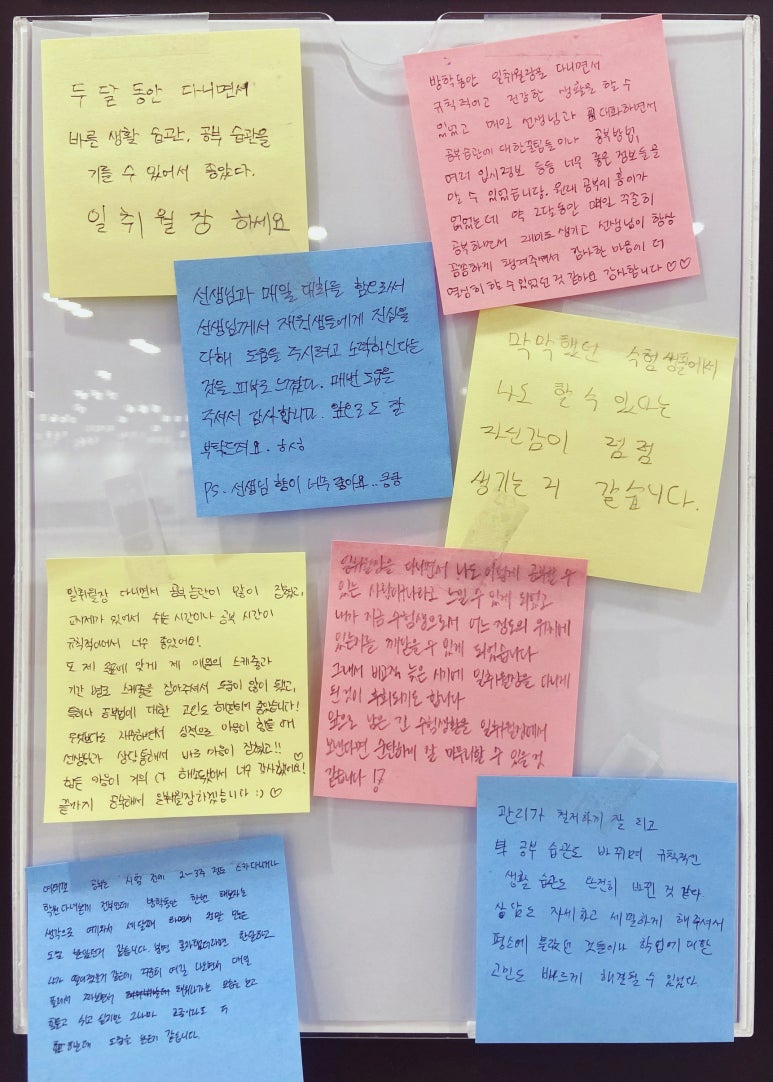 두 달 동안 다니면서
바른 생활 습관, 공부 습관을
기를 수 있어서 좋았다.
일취월장 하세요
방학동안 일취월장을 다니면서
규칙적이고 건강한 생활을 할 수
있었고 매일 선생님과 대화하면서
공부습관에 대한 꿀팁들이나 공부방법,
여러 입시정보 등등 너무 좋은 정보들을
알 수 있었습니당. 원래 공부에 흥미가
없었는데 약 2달동안 매일 꾸준히
공부하면서 재미도 생기고 선생님이 항상
꼼꼼하게 챙겨주셔서 감사한 마음에 더
열심히 할 수 있었던 것 같아요 감사합니다 ♡♡
선생님과 매일 대화를 함으로써
선생님께서 재원생들에게 진심을
다해 도움을 주시려고 노력하신다는
것을 피부로 느꼈다. 매번 도움을
주셔서 감사합니다. 앞으로도 잘
부탁드려요. ㅎㅅㅎ
Ps. 선생님 향이 너무 좋아요.. 킁킁
막막했던 수험 생활에서
나도 할 수 있다는
자신감이 점점
생기는 거 같습니다.
일취월장 다니면서 공부 습관이 많이 잡혔고,
교시제가 있어서 쉬는 시간이나 공부 시간이
규칙적이여서 너무 좋았어요!
또 제 에 맞게 제 스케줄과
기간 별로 스케줄을 잡아주셔서 도움이 많이 됐고,
특히나 공부법에 대한 고민도 해결되어 좋았습니다!
무엇보다도 재수하면서 심적으로 마음이 힘들 때
선생님과 상담을 해서 바로 마음이 잡혔고!!
힘든 마음이 거의 다 해소돼서 너무 감사했어요! ♡
끝까지 공부해서 일취월장하겠습니다 :) ♡
일취월장을 다니면서 나도 이렇게 공부할 수
있는 사람이라고 느낄 수 있게 되었고
내가 지금 수험생으로서 어느 정도의 위치에
있는지를 깨달을 수 있게 되었습니다
그래서 비교적 늦은 시기에 일취월장을 다니게
된 것이 후회되기도 합니다
앞으로 남은 긴 수험생활을 일취월장에서
보낸다면 순탄하게 잘 마무리할 수 있을 것
같습니다!
관리가 철저하게 잘 되고
공부 습관도 바뀌며 규칙적인
생활 습관도 완전히 바뀐 것 같다.
상담도 자세하고 세밀하게 해주셔서
평소에 몰랐던 것들이나 학업에 대한
고민도 빠르게 해결될 수 있었다.
공부는 시험 전에 2~3주 정도 스카다니거나
학원다닌게 전부인데 방학동안 한번 해보자는
생각으로 세달째 하면서 정말 많은
도움 받았던거 같습니다.
내가 꾸준히 여길 나오면서 매일
도움을 받은거 같습니다.